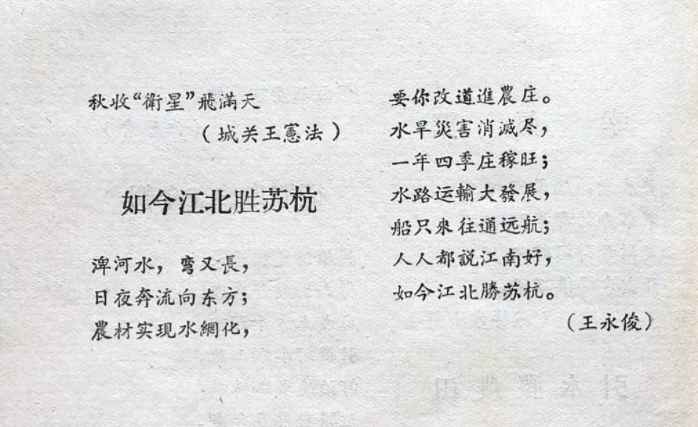 秋收“衛星”飛滿天
（城关王憲法）
如今江北胜苏杭
淠河水，弯又長，
日夜奔流向东方；
農村实現水網化，
要你改道進農庄。
水旱災害消滅尽，
一年四季庄稼旺；
水路运輸大發展，
船只來往通远航；
人人都説江南好，
如今江北勝苏杭。
（王永俊）